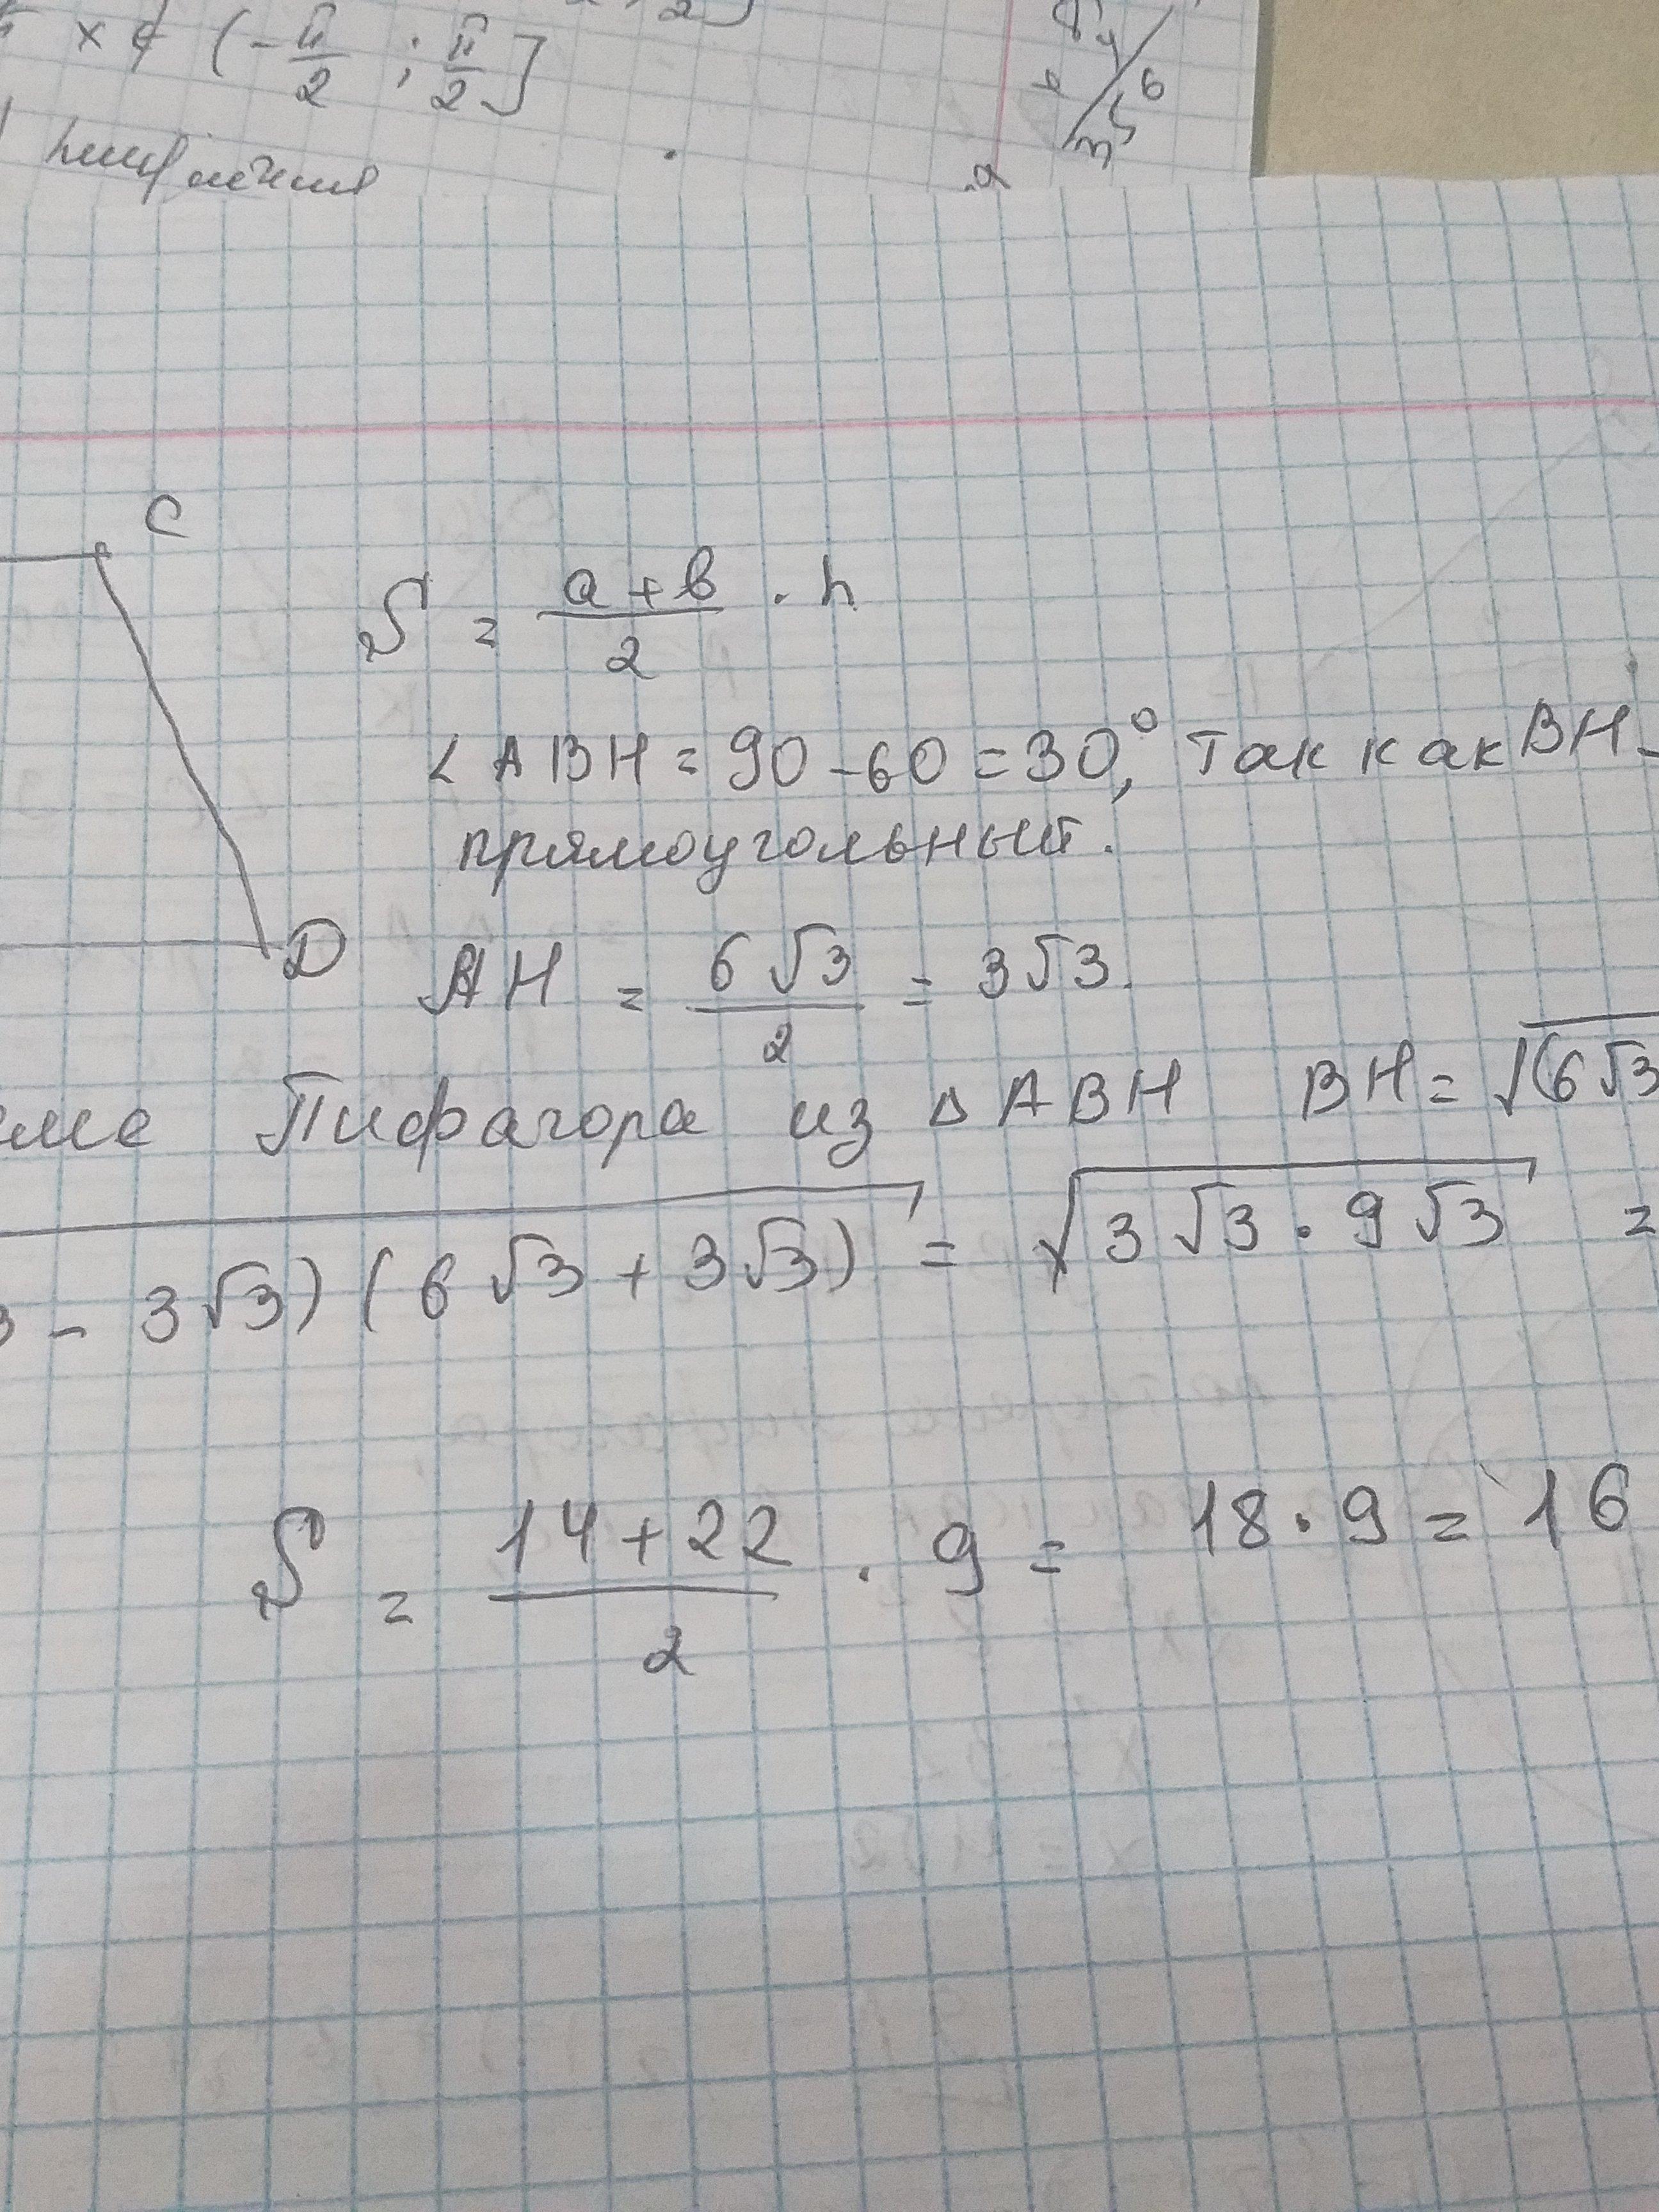 x ∉ (-π/2 ; π/2]
C
S = (a + b)/2 · h
∠ABH = 90 - 60 = 30°, так как BH -
прямоугольный.
D
AH = 6√3/2 = 3√3.
еме Пифагора из △ABH BH = √(6√3
- 3√3)(6√3 + 3√3) = √3√3 · 9√3 =
S = (14 + 22)/2 · 9 = 18 · 9 = 16